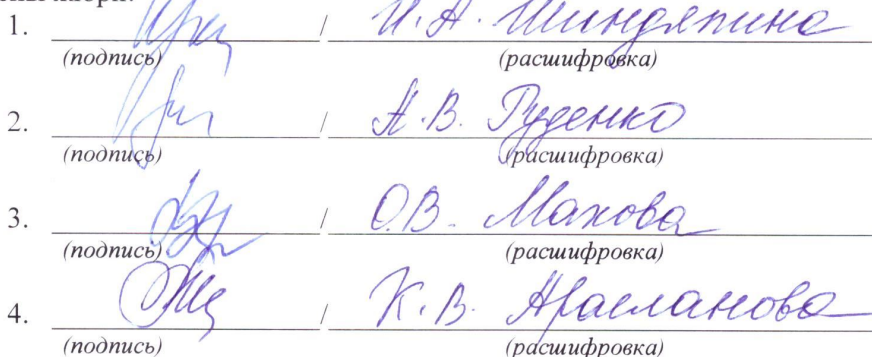 1. / И. А. Шиндяпина
(подпись) (расшифровка)
2. / А. В. Руденко
(подпись) (расшифровка)
3. / О. В. Махова
(подпись) (расшифровка)
4. / К. В. Арасланова
(подпись) (расшифровка)